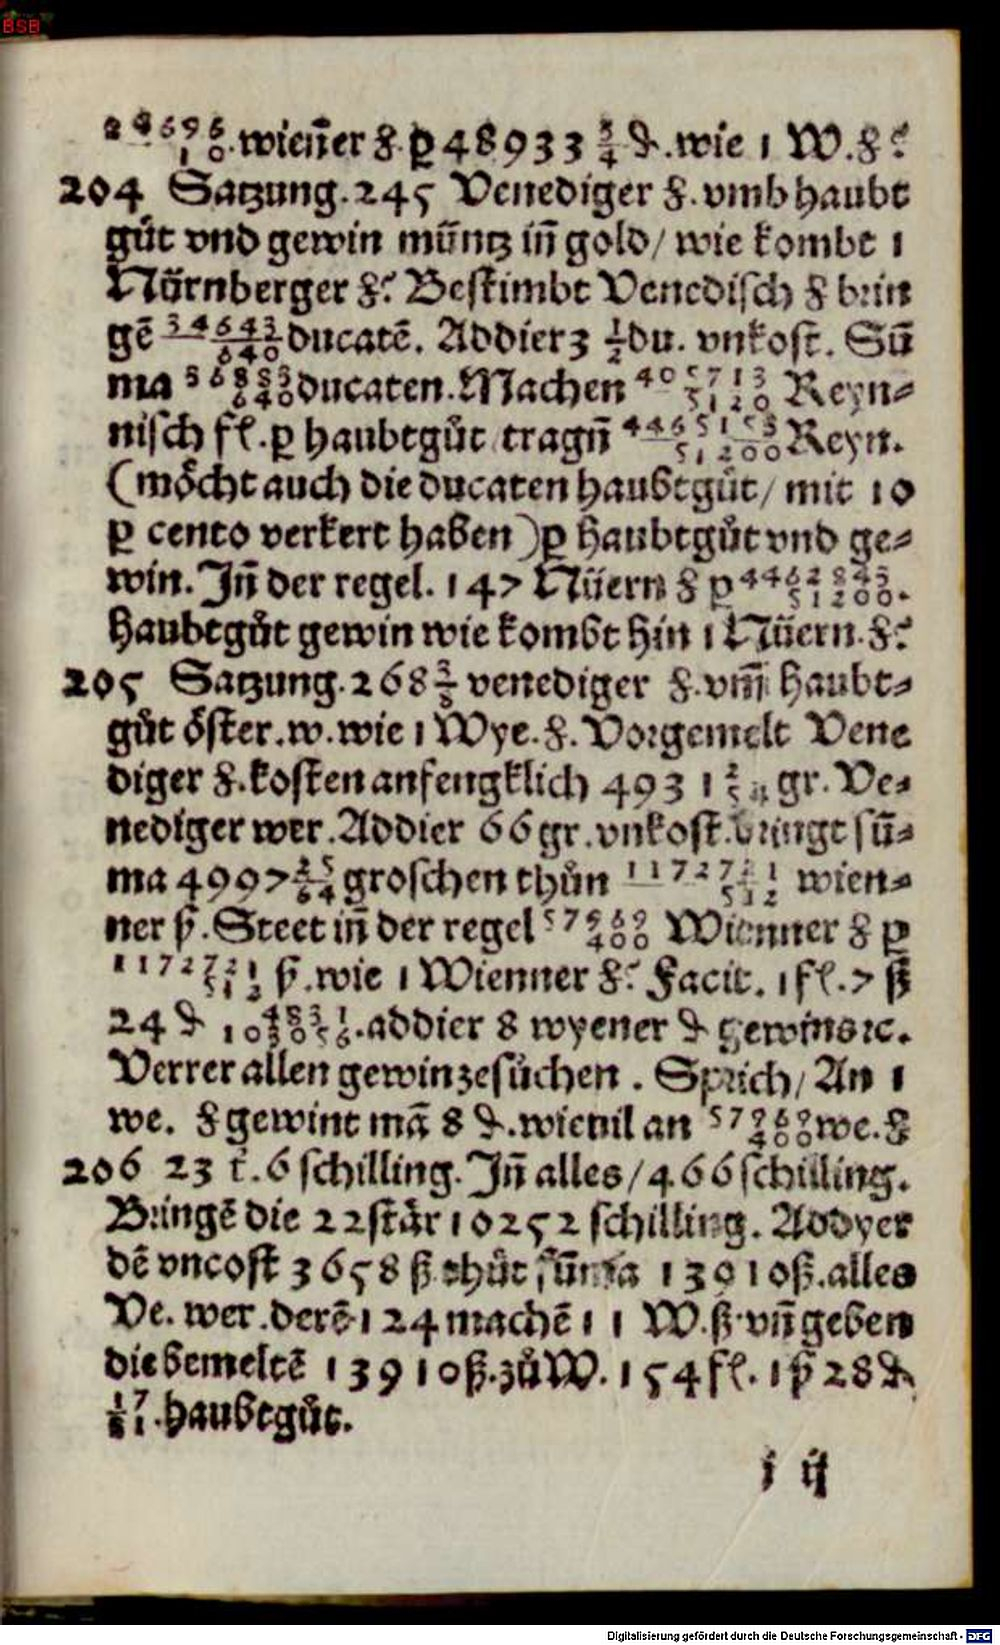 BSB
24696/10. wien̄er ℔. p̱ 48933 3/4 ₰. wie 1 W. ℔?
204 Satzung. 245 Venediger ℔. vmb haubt
gůt vnd gewin mün̄tz in̄ gold / wie kombt 1
Nürnberger ℔? Bestimbt Venedisch ℔ brin
gē 34643/640 ducatē. Addier 3 1/2 du. vnkost. Sū
ma 36883/640 ducaten. Machen 405713/5120 Reyn⸗
nisch fl. p̱ haubtgůt tragn̄ 4465153/51200 Reyn.
(möcht auch die ducaten haubtgůt / mit 10
p̱ cento verkert haben) p̱ haubtgůt vnd ge⸗
win. In̄ der regel. 147 Nüern ℔ p̱ 4462843/51200.
Haubtgůt gewin wie kombt hin 1 Nüern. ℔?
205 Satzung. 268 venediger ℔. vm̄ haubt⸗
gůt öster. w. wie 1 Wye. ℔. Vorgemelt Vene
diger ℔. kosten anfengklich 4931 gr. Ve⸗
nediger wer. Addier 66 gr. vnkost. bringt sū⸗
ma 4997 25/64 groschen thůn 1172721/512 wien⸗
ner ß. Steet in̄ der regel 57969/400 Wienner ℔ p̱
1172721/512 ß. wie 1 Wienner ℔? Facit. 1 fl. 7 ß
24 ₰ addier 8 wyener ₰ gewins ꝛc.
Verrer allen gewin zesůchen. Sprich / An 1
we. ℔ gewint mā 8 ₰. wievil an 57969/400 we. ℔
206 23 t̄. 6 schilling. In̄ alles / 466 schilling.
Bringē die 22 stär 10252 schilling. Addyer
dē vncost 3658 ß thůt sūma 13910 ß. alles
Ve. wer. derē 124 machē 11 W. ß. vn̄ geben
die bemeltē 13910 ß. zů W. 154 fl. 1 ß 28 ₰
17/31. haubtgůt.
i ij
Digitalisierung gefördert durch die Deutsche Forschungsgemeinschaft - DFG